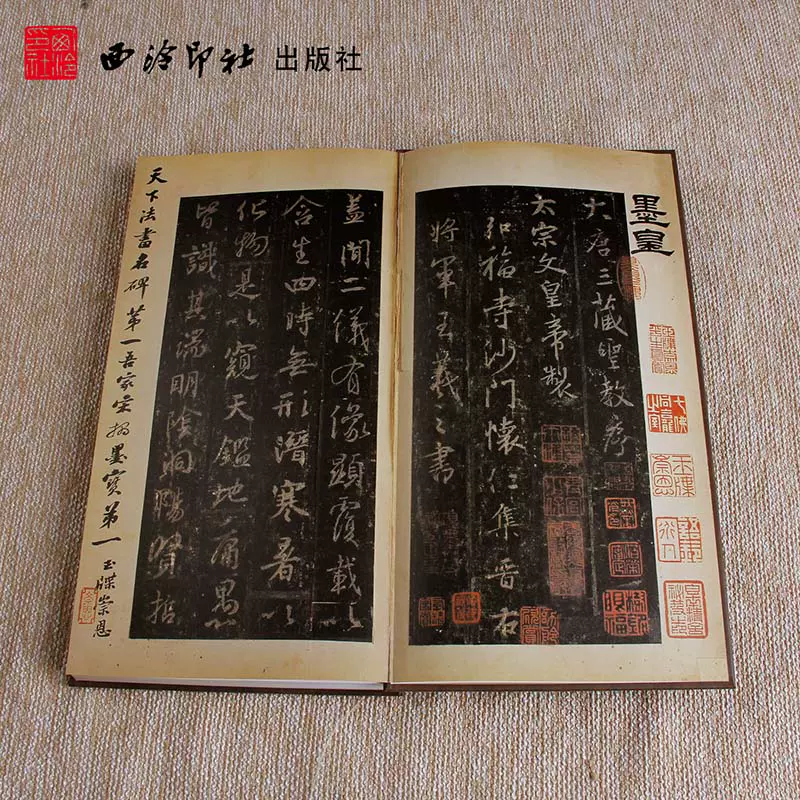 西泠印社 出版社
墨皇
大唐三藏聖教序
太宗文皇帝製
弘福寺沙門懷仁集晉右
將軍王羲之書
蓋聞二儀有像顯覆載以
含生四時無形潛寒暑以
化物是以窺天鑑地庸愚
皆識其端明陰洞陽賢哲
天下法書名碑第一吾家宋拓墨寶第一 玉牒崇恩